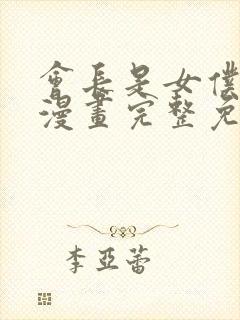 會長是女僕
漫畫完整免
李亞蕾